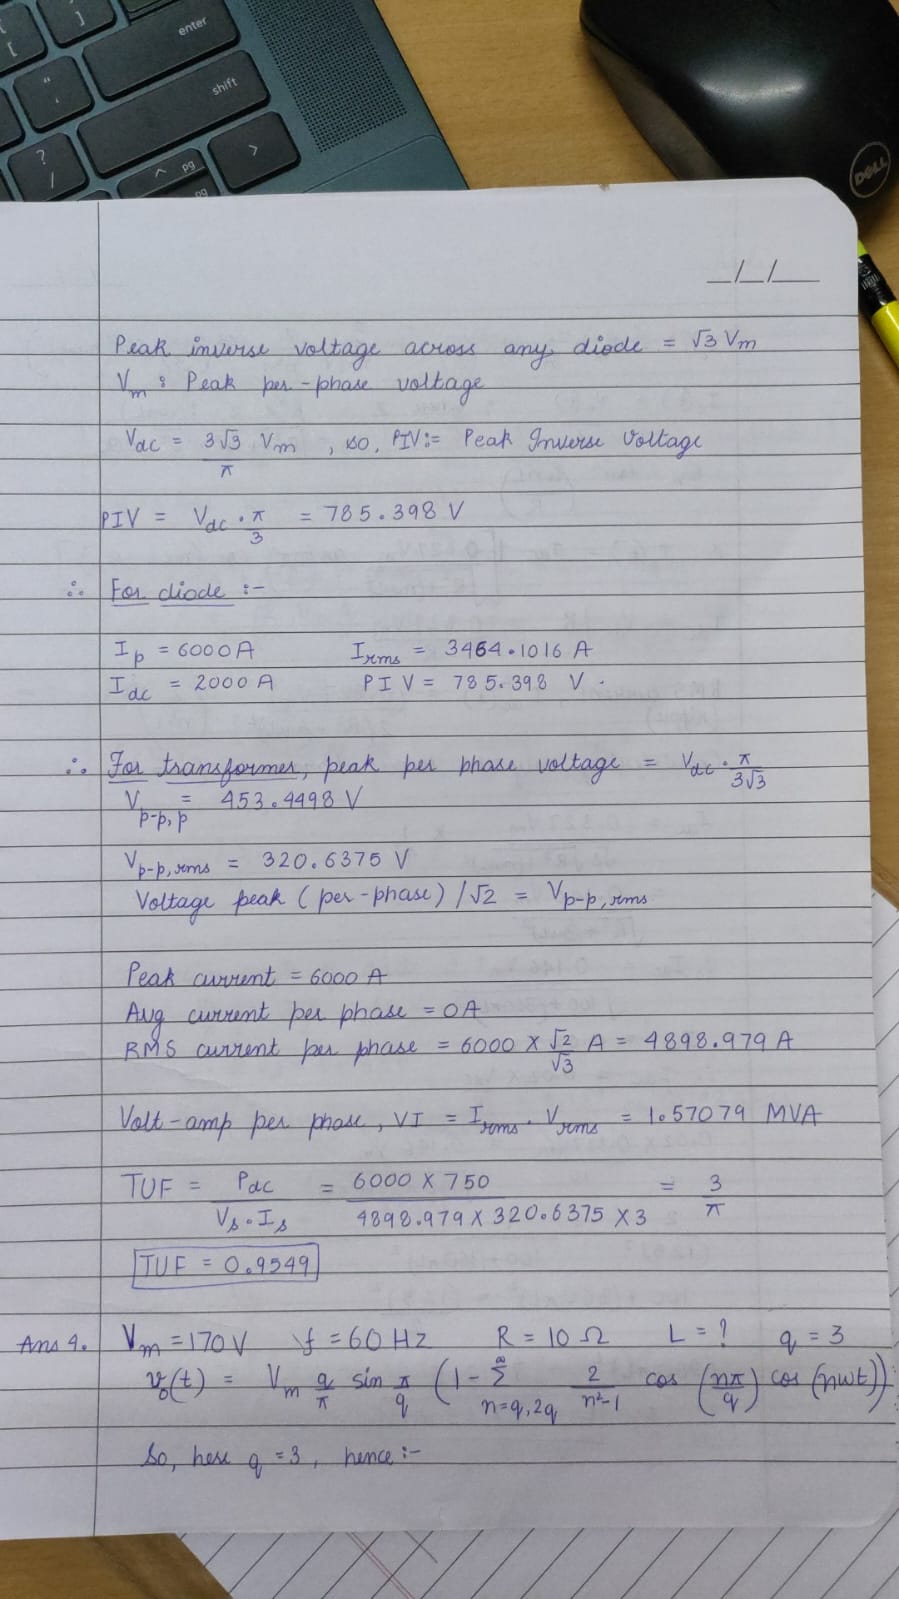 enter
shift
pg
DELL
_/_/__
Peak inverse voltage across any diode = √3 Vm
Vm : Peak per-phase voltage
Vdc = 3√3/π Vm , so, PIV := Peak Inverse Voltage
PIV = Vdc . π/3 = 785.398 V
∴ For diode :-
Ip = 6000A Irms = 3464.1016 A
Idc = 2000 A PIV = 785.398 V .
∴ For transformer, peak per phase voltage = Vdc . π/3√3
Vp-p,p = 453.4498 V
Vp-p,rms = 320.6375 V
Voltage peak (per-phase) /√2 = Vp-p,rms
Peak current = 6000 A
Avg current per phase = 0A
RMS current per phase = 6000 X √2/√3 A = 4898.979 A
Volt-amp per phase, VI = Irms . Vrms = 1.57079 MVA
TUF = Pdc/Vs.Is = 6000 X 750/4898.979 X 320.6375 X 3 = 3/π
TUF = 0.9549
Ans 4. Vm = 170 V f = 60 Hz R = 10 Ω L = ? q = 3
v0(t) = Vm q/π sin π/q (1 - ∞Σn=q,2q 2/n²-1 cos (nπ/q) cos (nwt))
So, here q = 3, hence :-